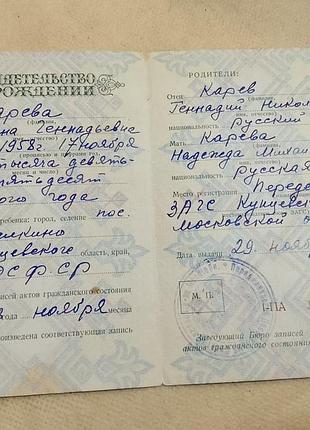 ДЕТЕЛЬСТВО
РОЖДЕНИИ
арева
(фамилия,
на Геннадьевна
имя, отчество)
1958г. 17 ноября
(прописью и цифрами
тысяча девять-
месяца и число)
пятьдесят
ого года
ребенка: город, селение пос.
елкино
цевского область, край,
ФСР
писей актов гражданского состояния
года ноября месяца
произведена соответствующая запись
РОДИТЕЛИ:
Отец Карев
(фамилия,
Геннадий Никол
имя, отчество)
национальность русский
Мать Карева
(фамилия,
Надежда Михай
имя, отчество)
национальность русская
Место регистрации Переде
ЗАГС Кунцевск
Московской о
Дата выдачи 29. нояб
М. П.
I-ПА
Заведующий Бюро записей
актов гражданского состояния